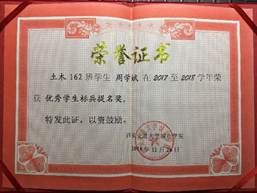 荣誉证书
土木162班学生 周学斌 在2017至2018学年荣
获 优秀学生标兵提名奖。
特发此证，以资鼓励。